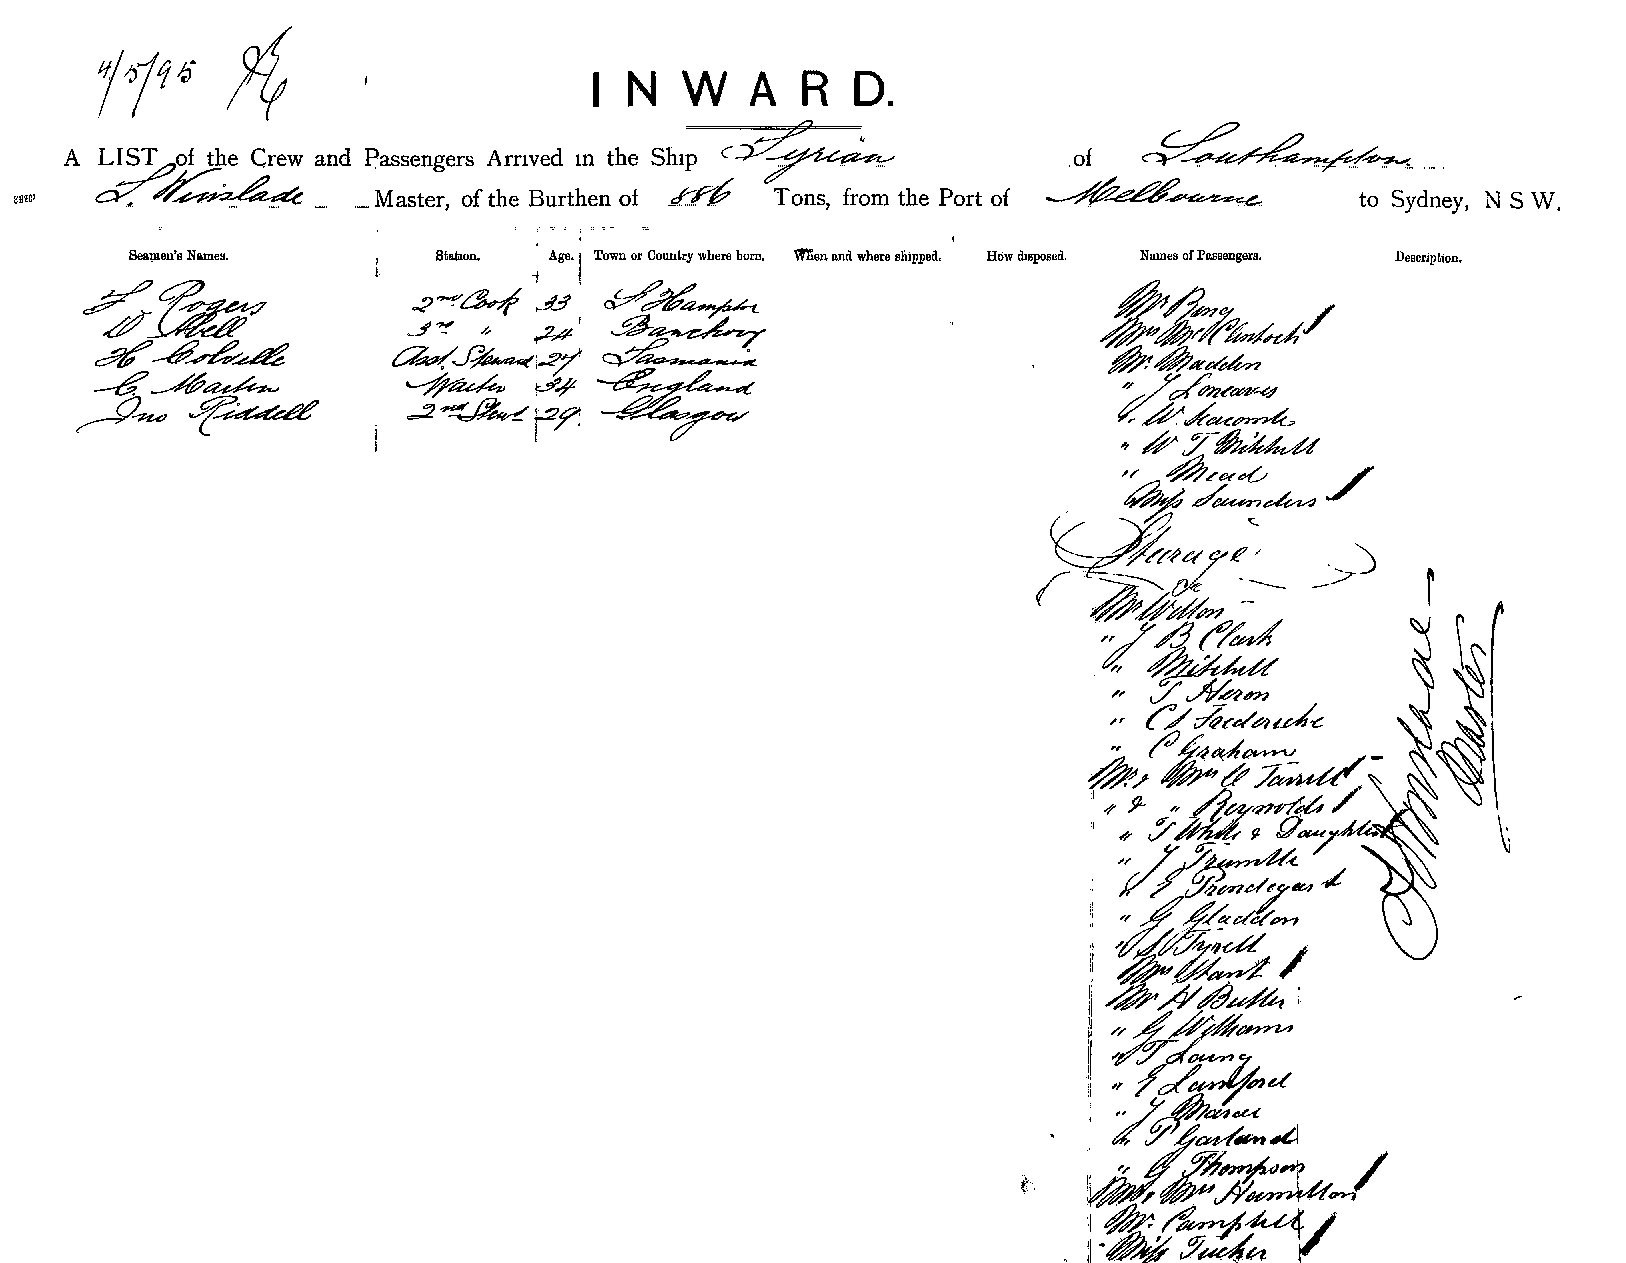 4/5/95
INWARD.
A LIST of the Crew and Passengers Arrived in the Ship Syrian of Southampton
S. Winslade Master, of the Burthen of 886 Tons, from the Port of Melbourne to Sydney, N S W.
Seamen's Names. Station. Age. Town or Country where born. When and where shipped. How disposed. Names of Passengers. Description.
F Rogers 2nd Cook 33 S Hampton
D Abell 3rd " 24
H Colville Asst. Steward 27 Tasmania
C. Martin Waiter 34 England
Jno Riddell 2nd Stewd 29 Glasgow
Mr Bong
Mrs McClintock
Mr. Madden
" J
" W. Seacombe
" W T Mitchell
" Mead
Miss Saunders
Steerage
Mr Welton
" J B Clark
" Mitchell
" T Heron
" C
" C Graham
Mr. & Mrs C Tarrell
" & " Reynolds
" T White & Daughter
" J Trumble
" E Prendegast
" G Gladdon
" S Tyrell
Mrs Stant
Mr H Butler
" G Williams
" T Laing
" E Lamford
" J
" T Garland
" G Thompson
Mr. & Mrs Hamilton
Mr. Campbell
Miss Tucker
S Winslade
Master